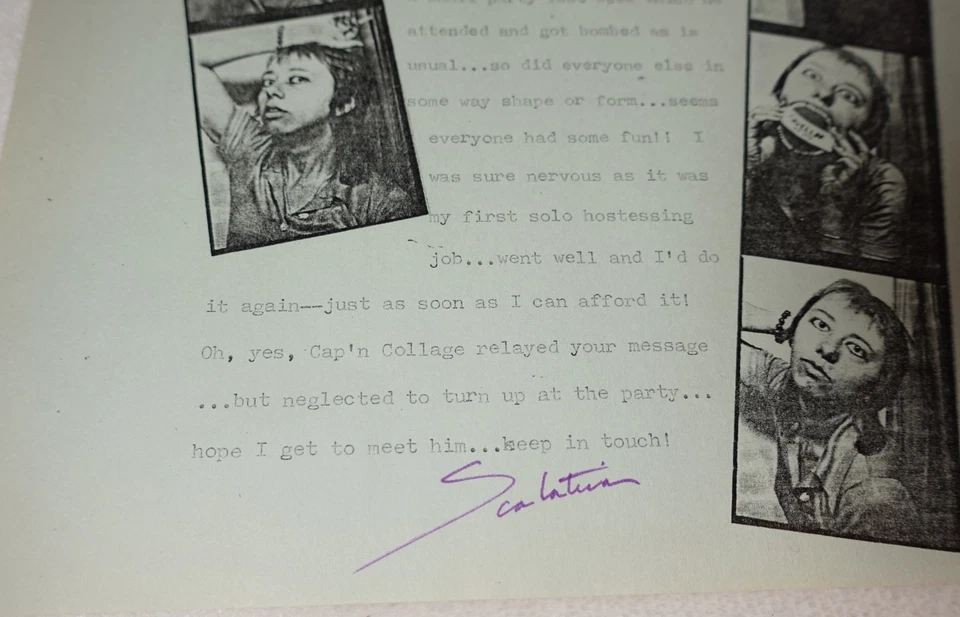 attended and got bombed as is
usual...so did everyone else in
some way shape or form...seems
everyone had some fun!! I
was sure nervous as it was
my first solo hostessing
job...went well and I'd do
it again--just as soon as I can afford it!
Oh, yes, Cap'n Collage relayed your message
...but neglected to turn up at the party...
hope I get to meet him...keep in touch!